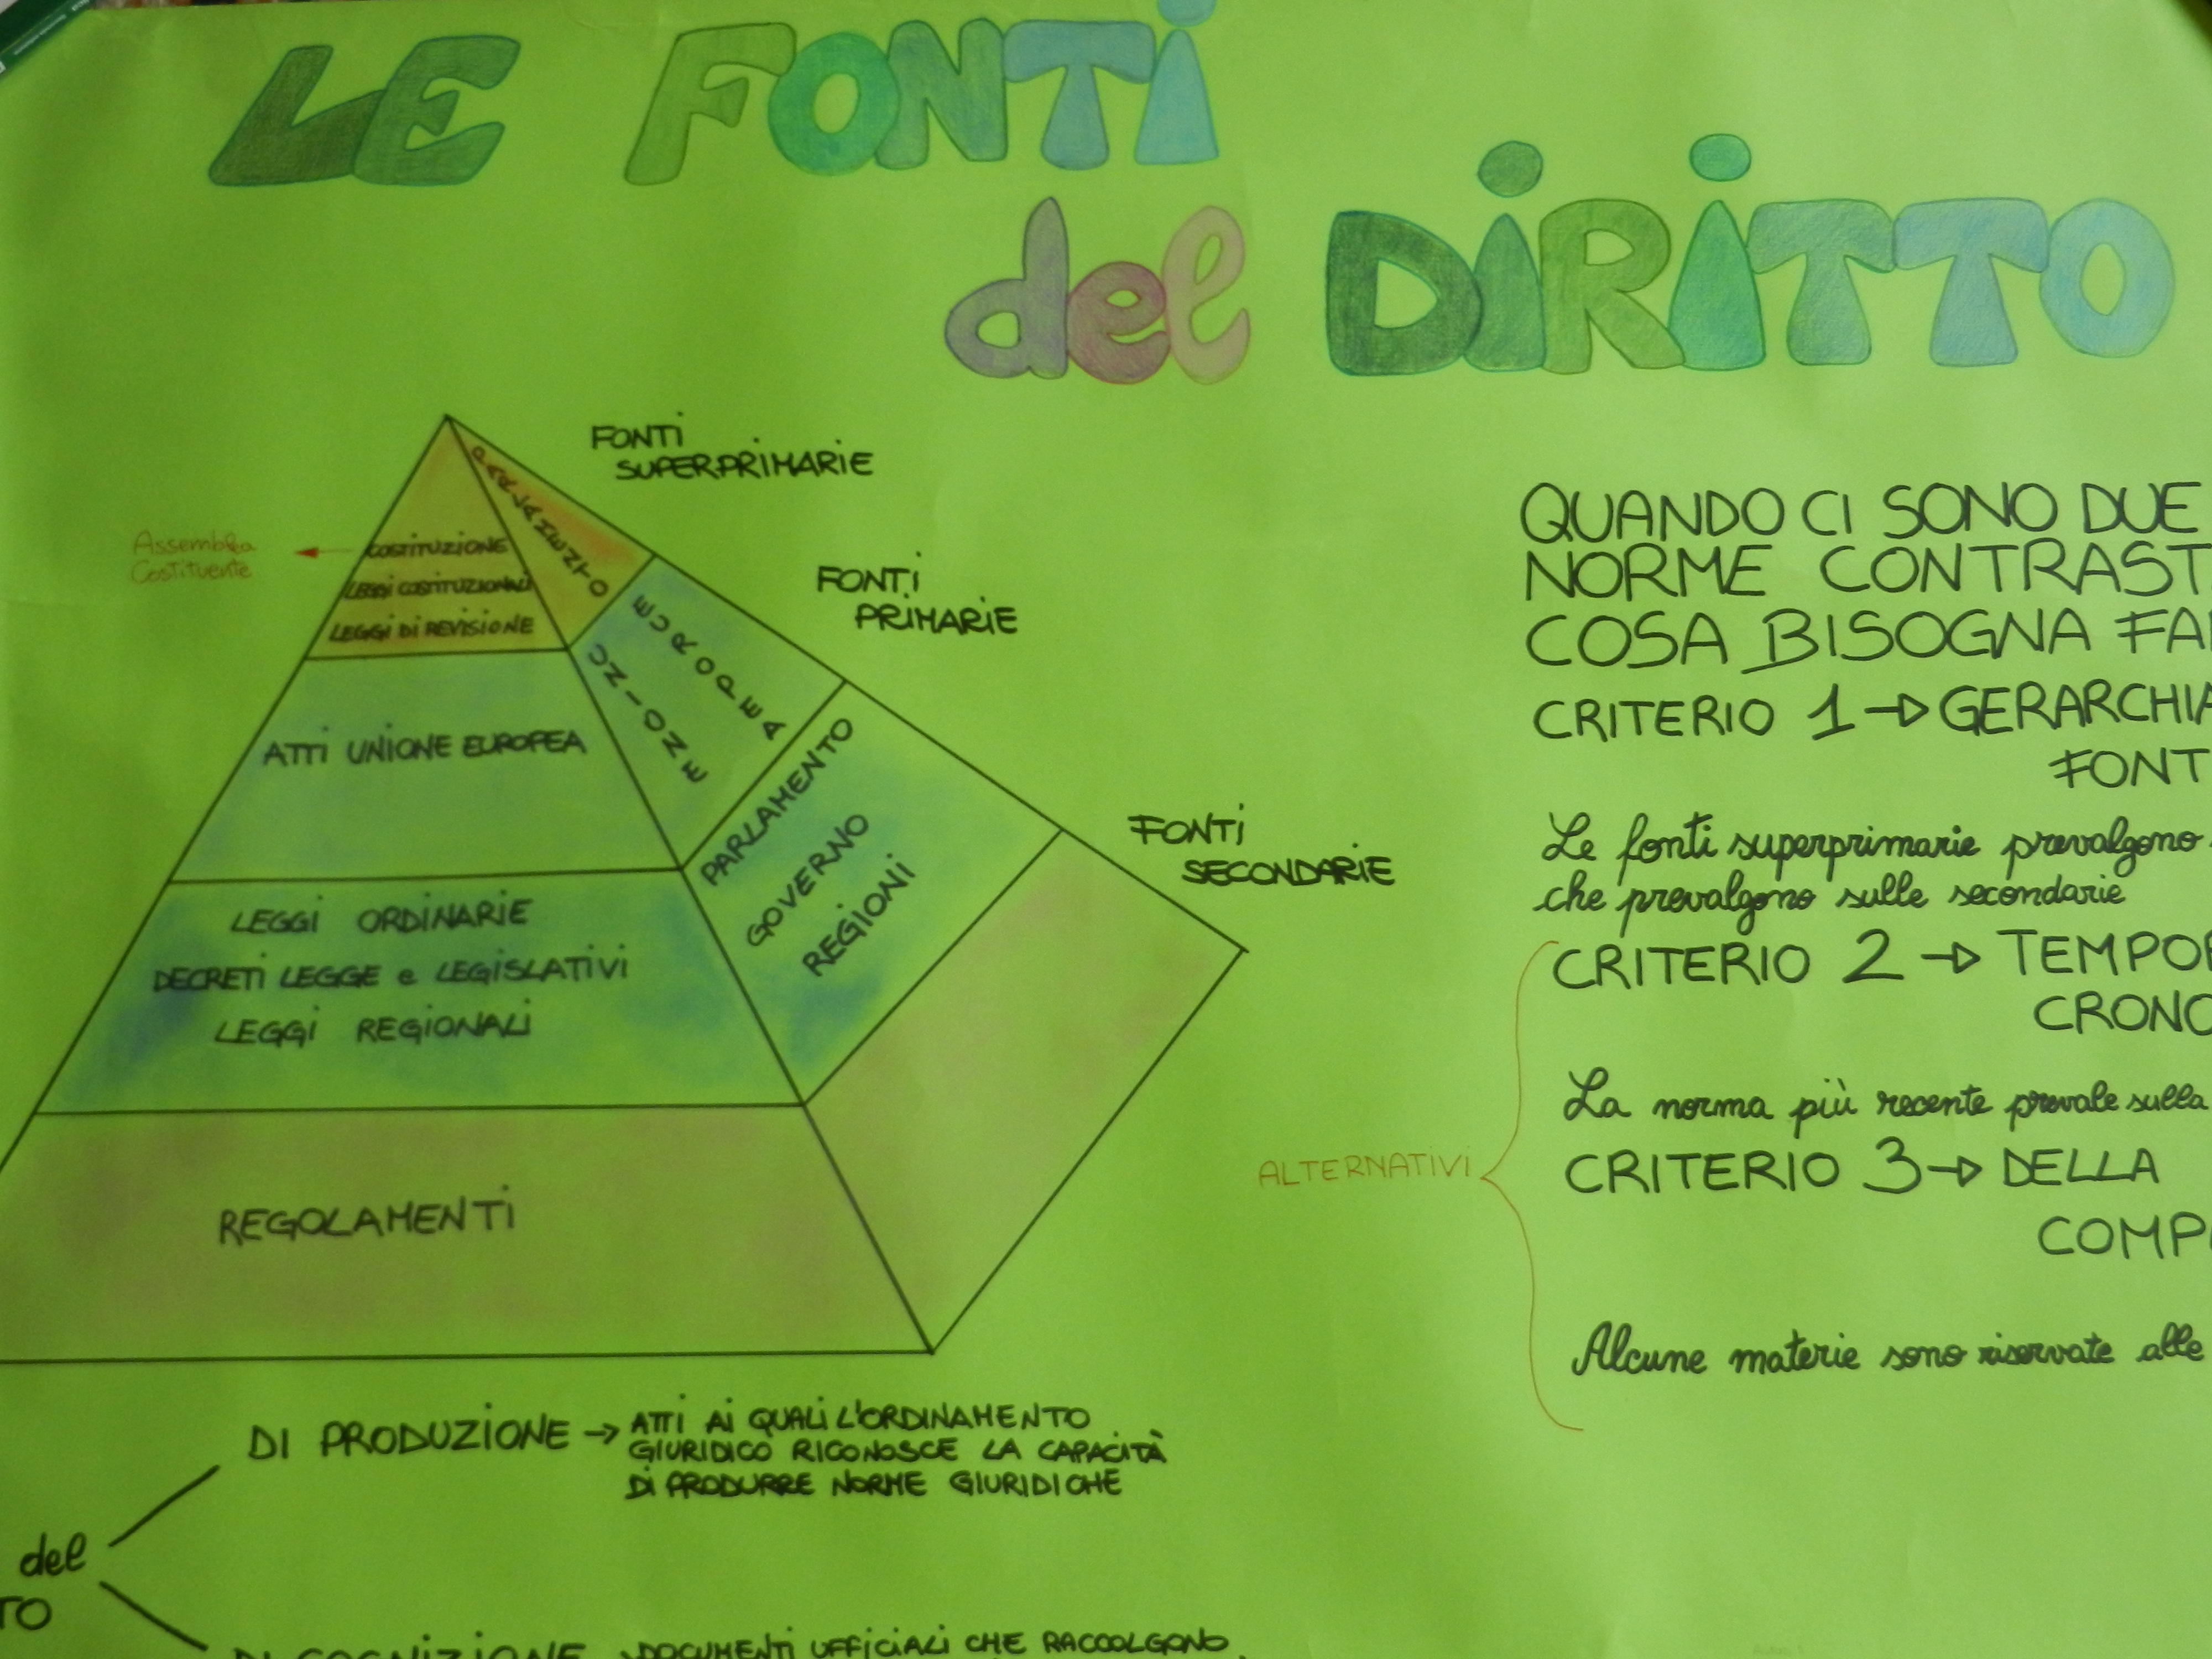 LE FONTI
del DIRITTO
FONTI
SUPERPRIMARIE
PARLAMENTO
Assemblea
Costituente
COSTITUZIONE
LEGGI COSTITUZIONALI
LEGGI DI REVISIONE
FONTI
PRIMARIE
UNIONE
EUROPEA
ATTI UNIONE EUROPEA
PARLAMENTO
GOVERNO
REGIONI
LEGGI ORDINARIE
DECRETI LEGGE e LEGISLATIVI
LEGGI REGIONALI
FONTI
SECONDARIE
REGOLAMENTI
DI PRODUZIONE → ATTI AI QUALI L'ORDINAMENTO
GIURIDICO RICONOSCE LA CAPACITÀ
DI PRODURRE NORME GIURIDICHE
del
TO
DI COGNIZIONE → DOCUMENTI UFFICIALI CHE RACCOLGONO
QUANDO CI SONO DUE
NORME CONTRAST
COSA BISOGNA FA
CRITERIO 1 → GERARCHIA
FONT
Le fonti superprimarie prevalgono
che prevalgono sulle secondarie
CRITERIO 2 → TEMPOR
CRONO
La norma più recente prevale sulla
ALTERNATIVI
CRITERIO 3 → DELLA
COMP
Alcune materie sono riservate alle